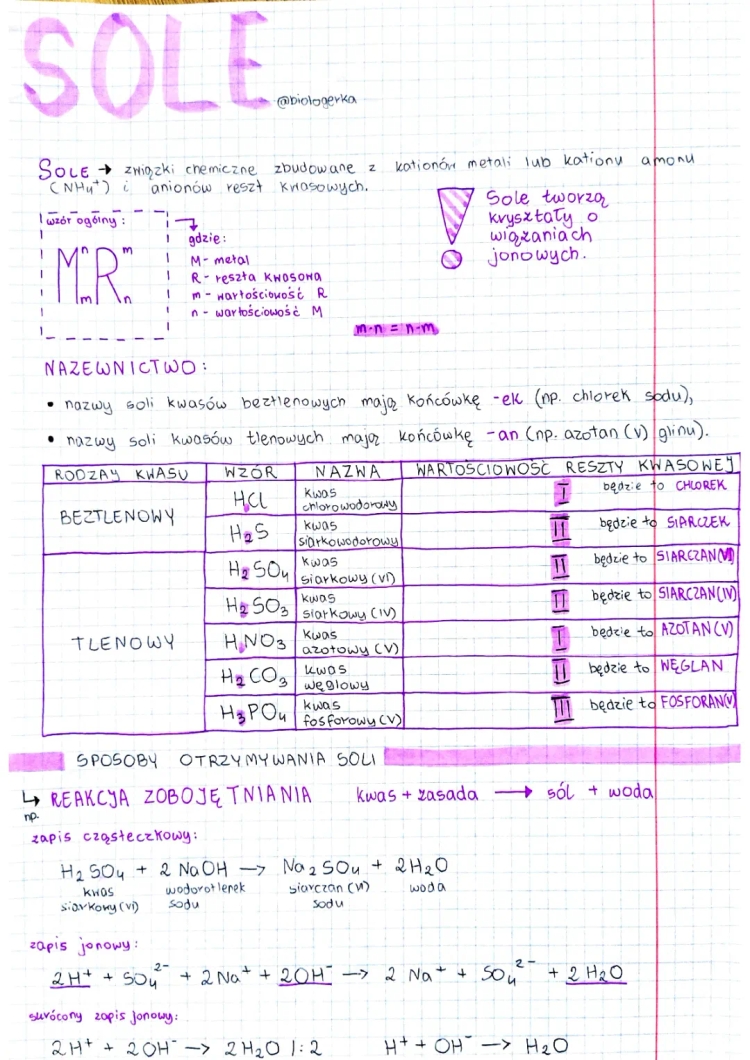 SOLE
@biologerka
SOLE → związki chemiczne zbudowane z kationów metali lub kationu amonu
(NH₄⁺) i anionów reszt kwasowych.
wzór ogólny:
Mⁿₘ Rᵐₙ
gdzie:
M - metal
R - reszta kwasowa
m - wartościowość R
n - wartościowość M
! Sole tworzą
kryształy o
wiązaniach
jonowych.
m·n = n·m
NAZEWNICTWO:
• nazwy soli kwasów beztlenowych mają końcówkę -ek (np. chlorek sodu),
• nazwy soli kwasów tlenowych mają końcówkę -an (np. azotan (V) glinu).
RODZAJ KWASU WZÓR NAZWA WARTOŚCIOWOŚĆ RESZTY KWASOWEJ
BEZTLENOWY
HCl kwas chlorowodorowy I będzie to CHLOREK
H₂S kwas siarkowodorowy II będzie to SIARCZEK
TLENOWY
H₂SO₄ kwas siarkowy (VI) II będzie to SIARCZAN(VI)
H₂SO₃ kwas siarkowy (IV) II będzie to SIARCZAN(IV)
HNO₃ kwas azotowy (V) I będzie to AZOTAN(V)
H₂CO₃ kwas węglowy II będzie to WĘGLAN
H₃PO₄ kwas fosforowy (V) III będzie to FOSFORAN(V)
SPOSOBY OTRZYMYWANIA SOLI
↳ REAKCJA ZOBOJĘTNIANIA kwas + zasada → sól + woda
np.
zapis cząsteczkowy:
H₂SO₄ + 2 NaOH → Na₂SO₄ + 2H₂O
kwas wodorotlenek siarczan (VI) woda
siarkowy (VI) sodu sodu
zapis jonowy:
2H⁺ + SO₄²⁻ + 2Na⁺ + 2OH⁻ → 2 Na⁺ + SO₄²⁻ + 2 H₂O
skrócony zapis jonowy:
2H⁺ + 2OH⁻ → 2H₂O |:2 H⁺ + OH⁻ → H₂O